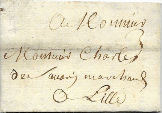 A Monsieur
Monsieur Charles
marchand
A Lille